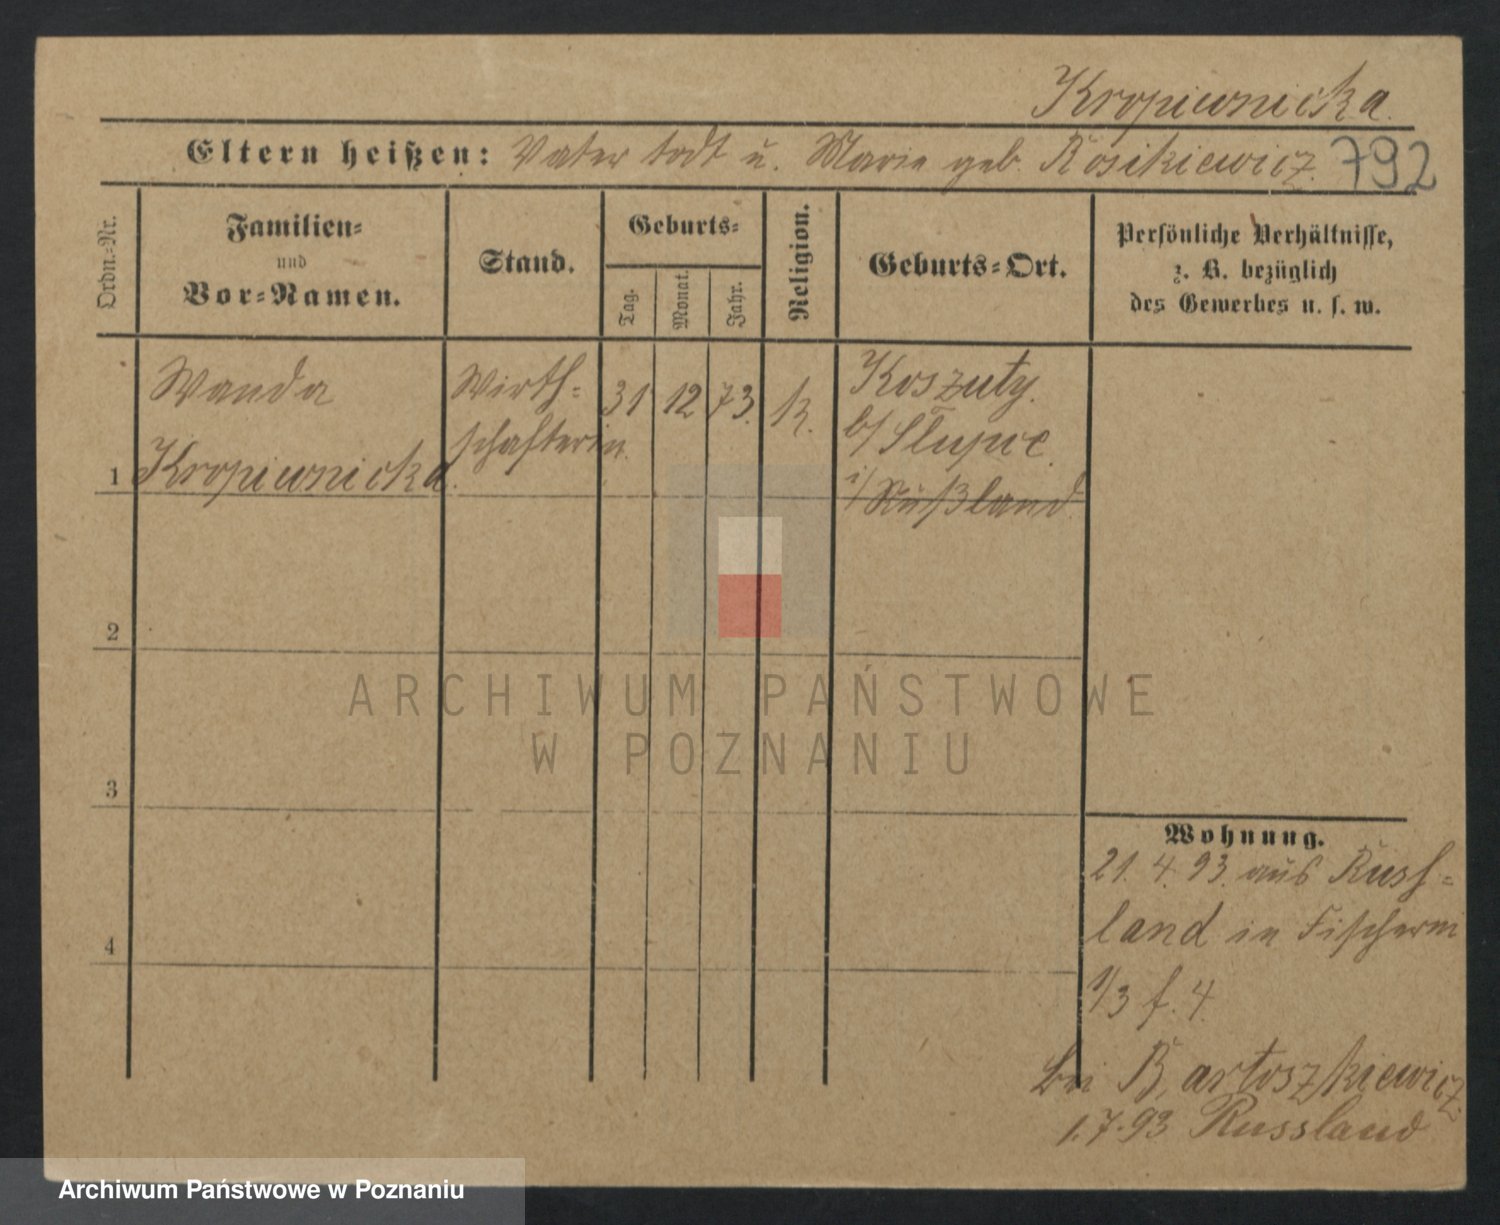 Kropiwnicka.
Eltern heißen: Vater todt u. Marie geb. Rosikiewicz. 792
Ordn.-Nr.
Familien-
und
Vor-Namen.
Stand.
Geburts-
Tag.
Monat.
Jahr.
Religion.
Geburts-Ort.
Persönliche Verhältnisse,
z. B. bezüglich
des Gewerbes u. s. w.
1
Wanda
Kropiwnicka.
Wirth-
schafterin.
31
12
73.
k.
Koszuty.
b/ Slupce.
i/ Rußland.
2
3
4
Wohnung.
21. 4. 93. aus Russ-
land in Fischerei
1/3 f. 4.
bei Bartoszkiewicz.
1.7.93 Russland
ARCHIWUM PAŃSTWOWE
W POZNANIU
Archiwum Państwowe w Poznaniu